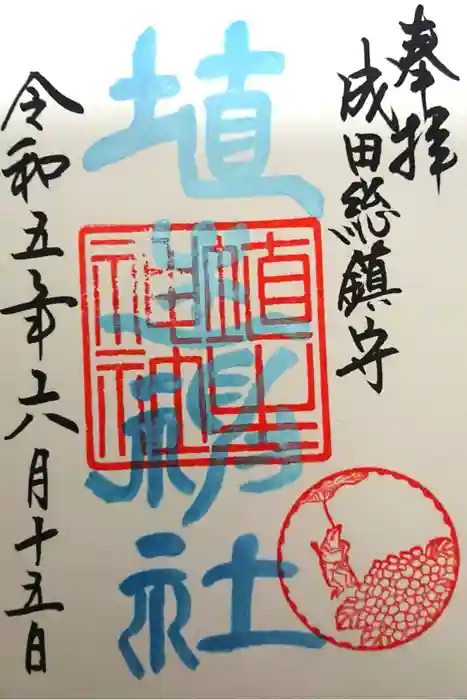 奉拝
成田総鎮守
埴生神社
令和五年六月十五日